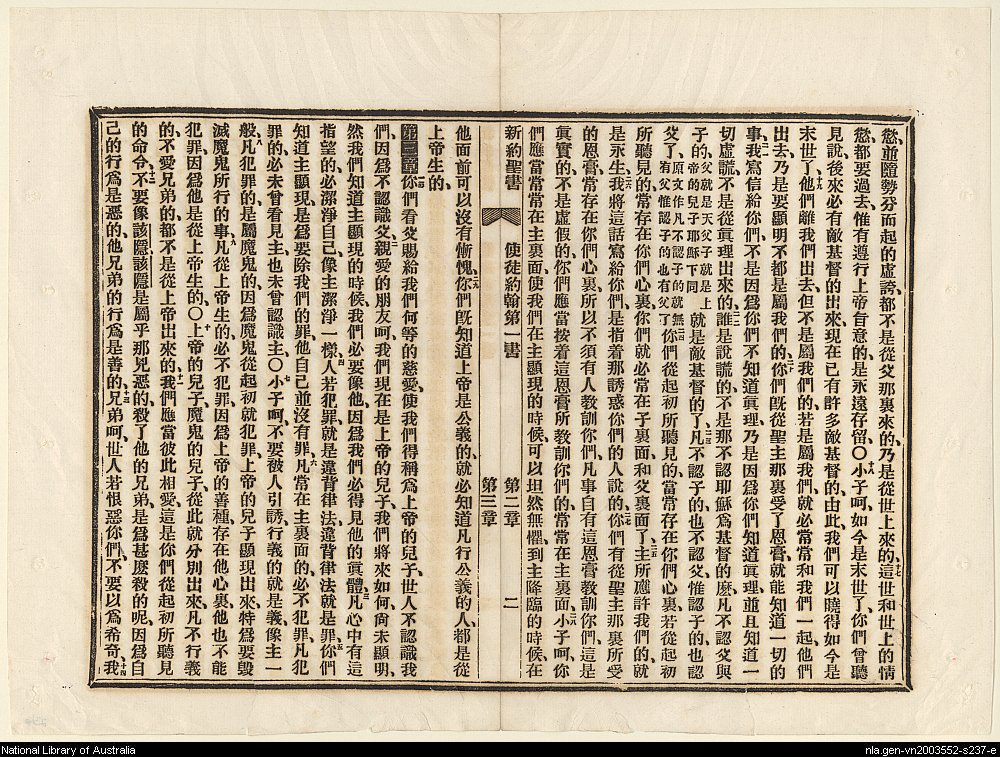 慾、並隨勢分而起的虛誇、都不是從父那裏來的、乃是從世上來的、十七這世和世上的情
慾、都要過去、惟有遵行上帝旨意的、是永遠存留、〇十八小子呵、如今是末世了、你們曾聽
見說、後來必有敵基督的出來、現在已有許多敵基督的、由此、我們可以曉得如今是
末世了、十九他們離我們出去、但不是屬我們的、若是屬我們、就必常常和我們一起、他們
出去、乃是要顯明不都是屬我們的、二十你們既從聖主那裏受了恩膏、就能知道一切的
事、二一我寫信給你們、不是因爲你們不知道眞理、乃是因爲你們知道眞理、並且知道一
切虛謊、不是從眞理出來的、二二誰是說謊的、不是那不認耶穌爲基督的麼、凡不認父與
子的、父就是天父子就是上帝的兒子耶穌下同就是敵基督的了、二三凡不認子的、也不認父、惟認子的、也認
父了、原文作凡不認子的就無父惟認子的也有父了二四你們從起初所聽見的、當常存在你們心裏、若從起初
所聽見的、常存在你們心裏、你們就必常在子裏面、和父裏面了、二五主所應許我們的、就
是永生、二六我將這話寫給你們、是指着那誘惑你們的人說的、二七你們有從聖主那裏所受
的恩膏、常存在你們心裏、所以不須有人教訓你們、凡事自有這恩膏教訓你們、這是
眞實的、不是虛假的、你們應當按着這恩膏所教訓你們的、常常在主裏面、二八小子呵、你
們應當常常在主裏面、使我們在主顯現的時候、可以坦然無懼、到主降臨的時候、在
新約聖書 使徒約翰第一書 第二章 第三章 二
他面前可以沒有慚愧、二九你們既知道上帝是公義的、就必知道凡行公義的人都是從
上帝生的、
第三章你們看父賜給我們何等的慈愛、使我們得稱爲上帝的兒子、世人不認識我
們、因爲不認識父、二親愛的朋友呵、我們現在是上帝的兒子、我們將來如何、尚未顯明、
然我們知道主顯現的時候、我們必要像他、因爲我們必得見他的眞體、三凡心中有這
指望的、必潔淨自己、像主潔淨一樣、四人若犯罪、就是違背律法、違背律法就是罪、五你們
知道主顯現、是爲要除我們的罪、他自己並沒有罪、六凡常在主裏面的、必不犯罪、凡犯
罪的、必未曾看見主、也未曾認識主、〇七小子呵、不要被人引誘、行義的就是義、像主一
般、八凡犯罪的、是屬魔鬼的、因爲魔鬼從起初就犯罪、上帝的兒子顯現出來、特爲要毀
滅魔鬼所行的事、九凡從上帝生的、必不犯罪、因爲上帝的善種存在他心裏、他也不能
犯罪、因爲他是從上帝生的、〇十上帝的兒子、魔鬼的兒子、從此就分別出來、凡不行義
的、不愛兄弟的、都不是從上帝出來的、十一我們應當彼此相愛、這是你們從起初所聽見
的命令、十二不要像該隱、該隱是屬乎那兇惡的、殺了他的兄弟、是爲甚麼殺的呢、因爲自
己的行爲是惡的、他兄弟的行爲是善的、十三兄弟呵、世人若恨惡你們、不要以爲希奇、十四我
National Library of Australia
nla.gen-vn2003552-s237-e